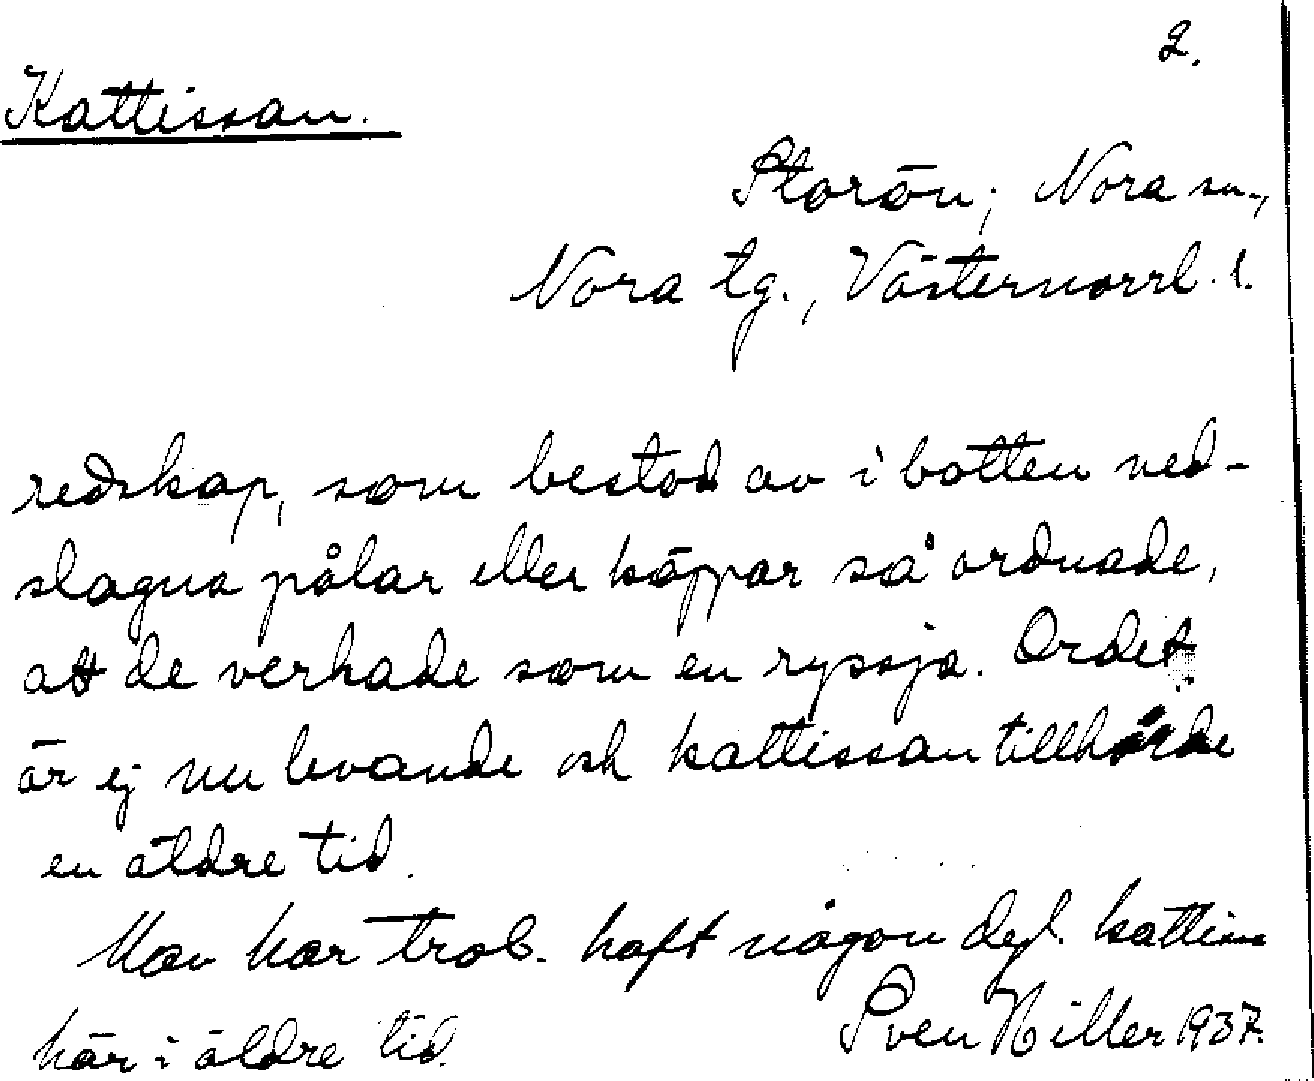 2.
Kattissan.
Storön; Nora sn.,
Nora tg., Västernorrl. l.
redskap, som bestod av i botten ned-
slagna pålar eller käppar så ordnade,
att de verkade som en ryssja. Ordet
är ej nu levande och kattissan tillhörde
en äldre tid.
Man har trol. haft någon dyl. kattissa
här i äldre tid.
Sven Hiller 1937.